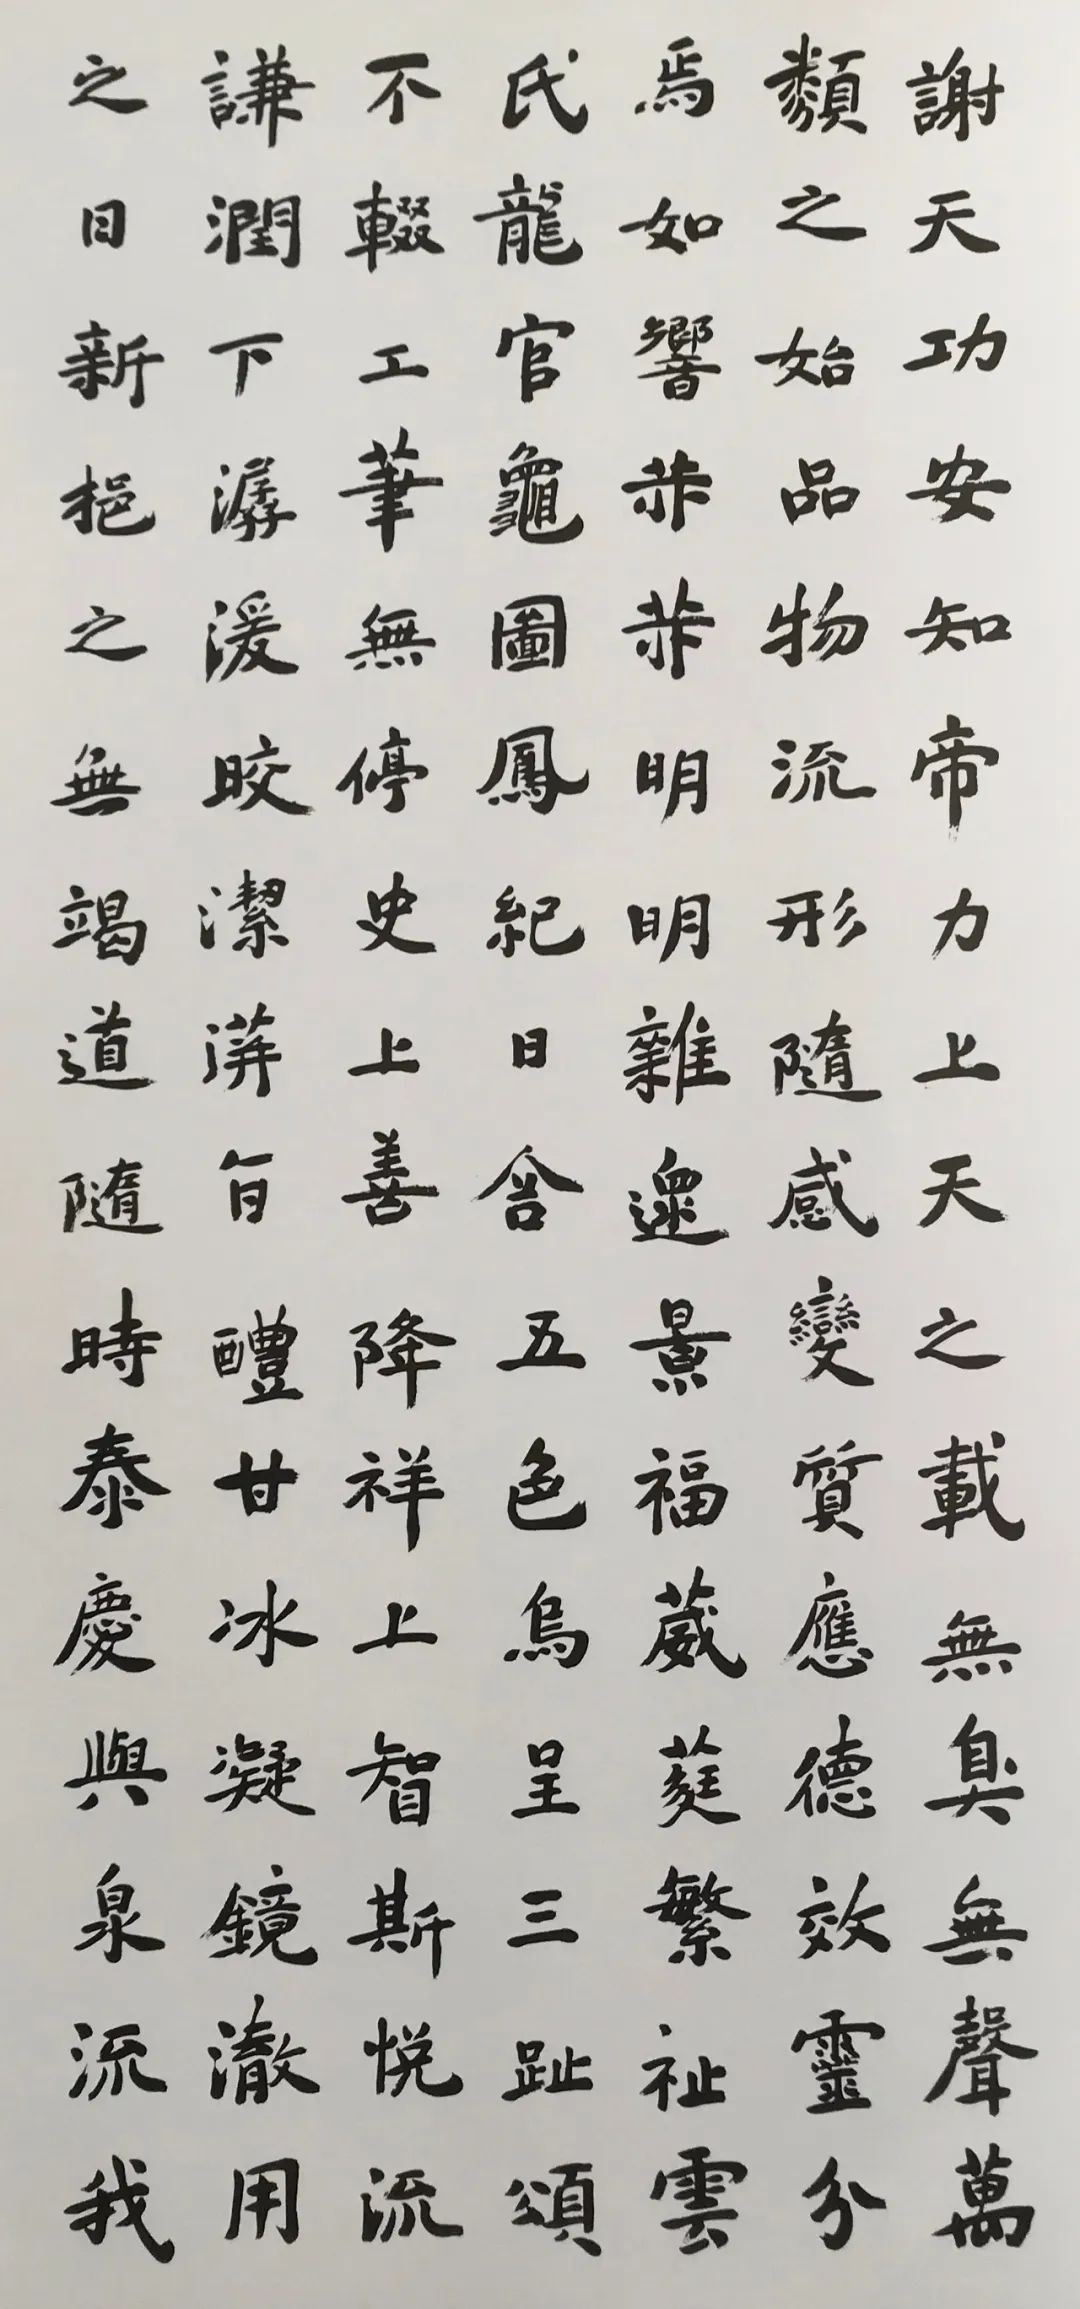 謝天功安知帝力上天之載無臭無聲萬
類之始品物流形隨感變質應德效靈分
焉如響赫赫明明雜遝景福葳蕤繁祉雲
氏龍官龜圖鳳紀日含五色烏呈三趾頌
不輟工筆無停史上善降祥上智斯悅流
謙潤下潺湲晈潔蓱旨醴甘冰凝鏡澈用
之日新挹之無竭道隨時泰慶與泉流我